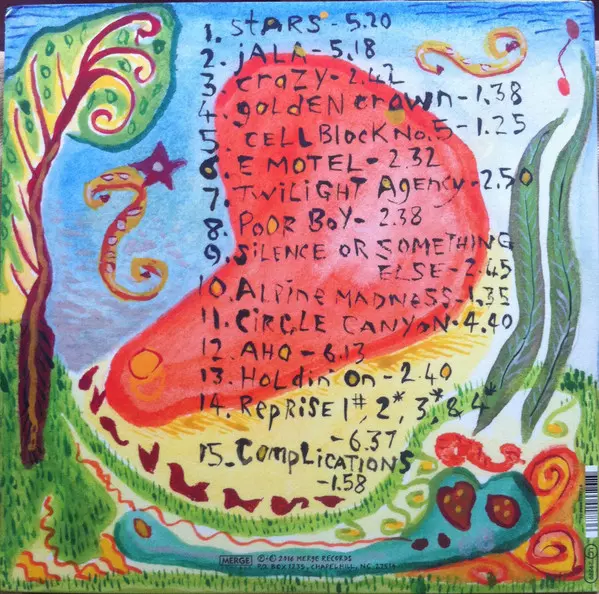 1. STARS - 5.20
2. jALA - 5.18
3. crazy - 2.42
4. golden crown - 1.38
5. CELL BlocK No. 5 - 1.25
6. E MOTEL - 2.32
7. TWILIGHT Agency - 2.50
8. POOR BOY - 2.38
9. SiLENCE OR SOMETHING
ELSE - 2.45
10. Alpine MADNESS - 1.35
11. CIRCLE CANYON - 4.40
12. AHO - 6.13
13. HoLdin' On - 2.40
14. RepRISE 1#, 2*, 3*, & 4*
- 6.37
15. COMPLICATIONS
- 1.58
MERGE ℗ © 2016 MERGE RECORDS
P.O. BOX 1235, CHAPEL HILL, NC, 27514